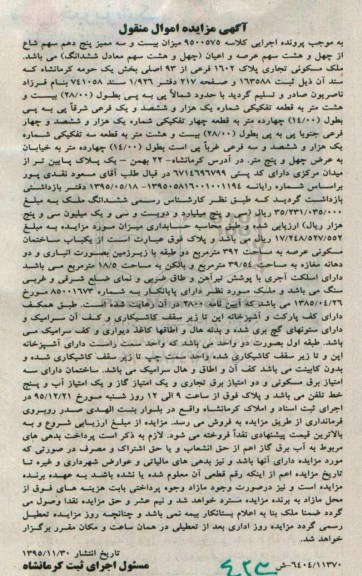 آگهی مزایده اموال منقول
به موجب پرونده اجرایی کلاسه ۹۵۰۰۵۷۵ میزان بیست و سه ممیز پنج دهم سهم شاع
از چهل و هشت سهم عرصه و اعیان (چهل و هشت سهم معادل ششدانگ) می باشد.
ملک مسکونی تجاری پلاک ۱۶۰۲ فرعی از ۹۳ اصلی بخش یک حومه کرمانشاه که
سند آن ذیل ثبت ۱۶۳۵۸۸ و صفحه ۲۱۷ دفتر ۱/۹۲۶ سند ۷۴۱۰۵۸ بنام فرزاد
ناصریون صادر و تسلیم گردید با حدود شمالاً پی به پی بطول (۲۸/۰۰) بیست و
هشت متر به قطعه تفکیکی شماره یک هزار و ششصد و یک فرعی شرقاً پی به پی
بطول (۱۴/۰۰) چهارده متر به قطعه چهار تفکیکی شماره یک هزار و ششصد و چهار
فرعی جنوبا پی به پی بطول (۲۸/۰۰) بیست و هشت متر به قطعه سه تفکیکی شماره
یک هزار و ششصد و سه فرعی غرباً پی است بطول (۱۴/۰۰) چهارده متر به خیابان
به عرض چهل و پنج متر. در آدرس کرمانشاه- ۲۲ بهمن - یک پلاک پایین تر از
میدان مرکزی دارای کد پستی ۶۷۱۴۶۹۷۷۹۹ در قبال طلب آقای مسعود نقدی پور
براساس شماره رایانه ۱۳۹۵۰۵۸۱۶۰۰۱۰۰۱۱۹۴- ۱۳۹۵/۰۵/۱۸ دفتر بازداشتی
بازداشت گردید که طبق نظر کارشناس رسمی ششدانگ ملک به مبلغ
۳۵/۲۳۱/۰۳۵/۰۰۰ ریال (سی و پنج میلیارد و دویست و سی و یک میلیون سی و پنج
هزار ریال) ارزیابی شده و طبق محاسبه حسابداری میزان مورد مزایده به مبلغ
۱۷/۲۴۸/۵۲۷/۵۵۲ ریال می باشد و پلاک فوق عبارت است از یکباب ساختمان
مسکونی عرصه به مساحت ۳۹۲ مترمربع دو طبقه با زیرزمین بصورت انباری و دو
دهانه مغازه به مساحت ۳۹/۵۴ مترمربع و بالکن به مساحت ۱۸/۵ مترمربع می باشد
دارای اسکلت آجری با پوشش تیرآهن و طاق ضربی و نمای ضلع شرقی و غربی
سنگ می باشد و ملک مورد نظر دارای پایانکار به شماره ۸۵۰۰۱۶۷۳ مورخ
۱۳۸۵/۰۴/۲۶ می باشد که آیین نامه ۲۸۰۰ در آن رعایت شده است. طبق همکف
دارای کف پارکت و آشپزخانه اپن تا زیر سقف کاشیکاری و کف آن سرامیک و
دارای ستونهای گچ بری شده و بدنه هال و اطاقها کاغذ دیواری و کف سرامیک می
باشد. طبقه اول بصورت دو واحد می باشد که واحد سمت راست دارای آشپزخانه
اپن و تا زیر سقف کاشیکاری شده واحد سمت چپ تا زیر سقف کاشیکاری شده و
بدون کابینت می باشد کف آن و اطاق و هال سرامیک می باشد. ساختمان دارای سه
امتیاز برق مسکونی و دو امتیاز برق تجاری و یک امتیاز گاز و یک امتیاز آب و پنج
خط تلفن می باشد و پلاک فوق از ساعت ۹ الی ۱۲ روز شنبه مورخ ۹۵/۱۲/۲۱ در
اجرای ثبت اسناد و املاک کرمانشاه واقع در بلوار بنت الهدی صدر روبروی
فرمانداری از طریق مزایده به فروش می رسد. مزایده از مبلغ ارزیابی شروع و به
بالاترین قیمت پیشنهادی نقداً فروخته می شود. لازم به ذکر است پرداخت بدهی های
مربوط به آب برق گاز اعم از حق انشعاب و یا حق اشتراک و مصرف در صورتی که
مورد مزایده دارای آنها باشد و نیز بدهی های مالیاتی و عوارض شهرداری و غیره تا
تاریخ مزایده اعم از اینکه رقم قطعی آن معلوم شده یا نشده باشد به عهده برنده
مزایده است و نیز درصورت وجود مازاد وجوه پرداختی بابت هزینه های فوق از
محل مازاد به برنده مزایده مسترد خواهد شد و نیم عشر و حق مزایده نقدا وصول می
گردد ضمنا ملک بنا به اعلام بستانکار بیمه نمی باشد و چنانچه روز مزایده تعطیل
رسمی گردد مزایده روز اداری بعد از تعطیلی در همان ساعت و مکان مقرر برگزار
خواهد شد.
تاریخ انتشار ۱۳۹۵/۱۱/۳۰
۶۴۰۴/۱۱۳۷۰-ش مسئول اجرای ثبت کرمانشاه